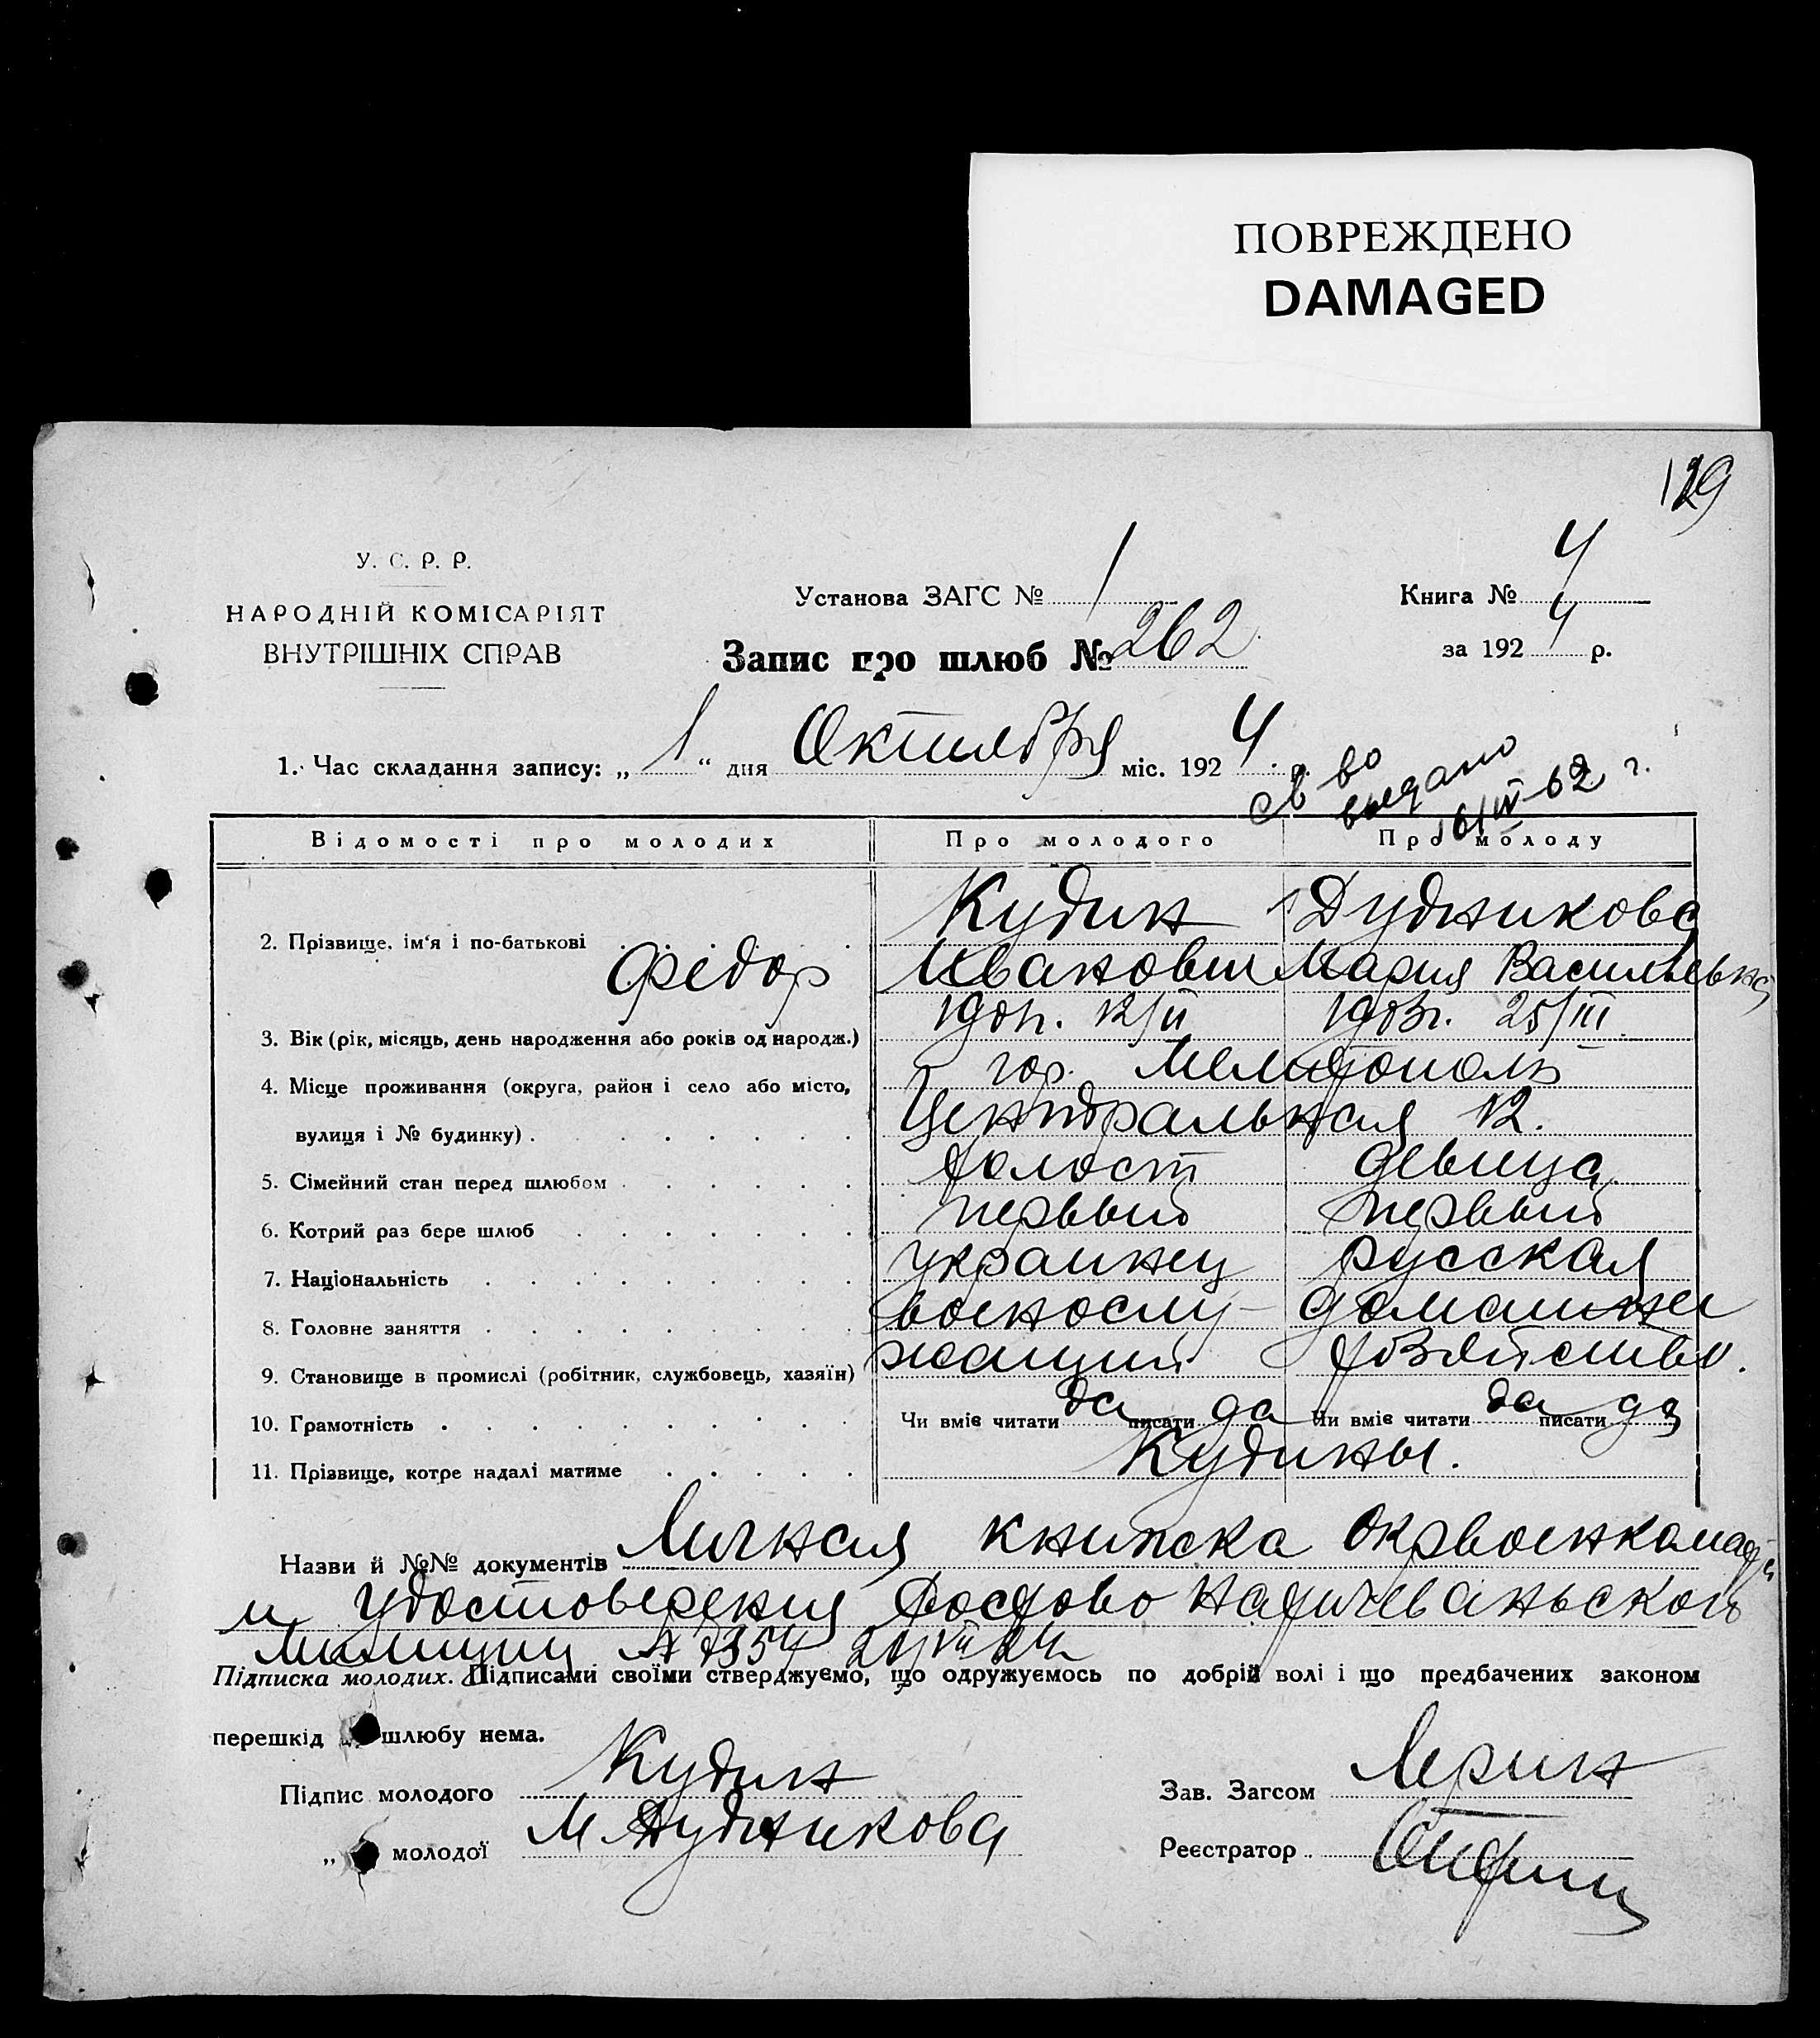 ПОВРЕЖДЕНО
DAMAGED
129
У. С. Р. Р.
НАРОДНІЙ КОМІСАРІЯТ
ВНУТРІШНІХ СПРАВ
Установа ЗАГС № 1
Запис про шлюб № 262
Книга № 4
за 1924 р.
1. Час складання запису: „1“ дня Октября міс. 1924 р.
св во
выдано
16/IV-62 г.
Відомості про молодих Про молодого Про молоду
2. Прізвище, ім‘я і по-батькові Кудин Дудникова
Федор Иванович Мария Васильевна
3. Вік (рік, місяць, день народження або років од народж.) 12/II 1903г. 25/III
4. Місце проживання (округа, район і село або місто, гор. Мелитополь
вулиця і № будинку) Центральная 12.
5. Сімейний стан перед шлюбом холост девица
6. Котрий раз бере шлюб первый первый
7. Національність украинец русская
8. Головне заняття военослу- домашнее
9. Становище в промислі (робітник, службовець, хазяїн) жащий хозяйство.
10. Грамотність Чи вміє читати да писати да Чи вміє читати да писати да
11. Прізвище, котре надалі матиме Кудины.
Назви й №№ документів Личная книжка Окрвоенкомата
и удостоверения Ростово Нахичеваньской
милиции № 7354
Підписка молодих. Підписами своїми стверджуємо, що одружуємось по добрій волі і що предбачених законом
перешкід шлюбу нема.
Підпис молодого Кудин
„ молодої М Дудникова
Зав. Загсом
Реєстратор